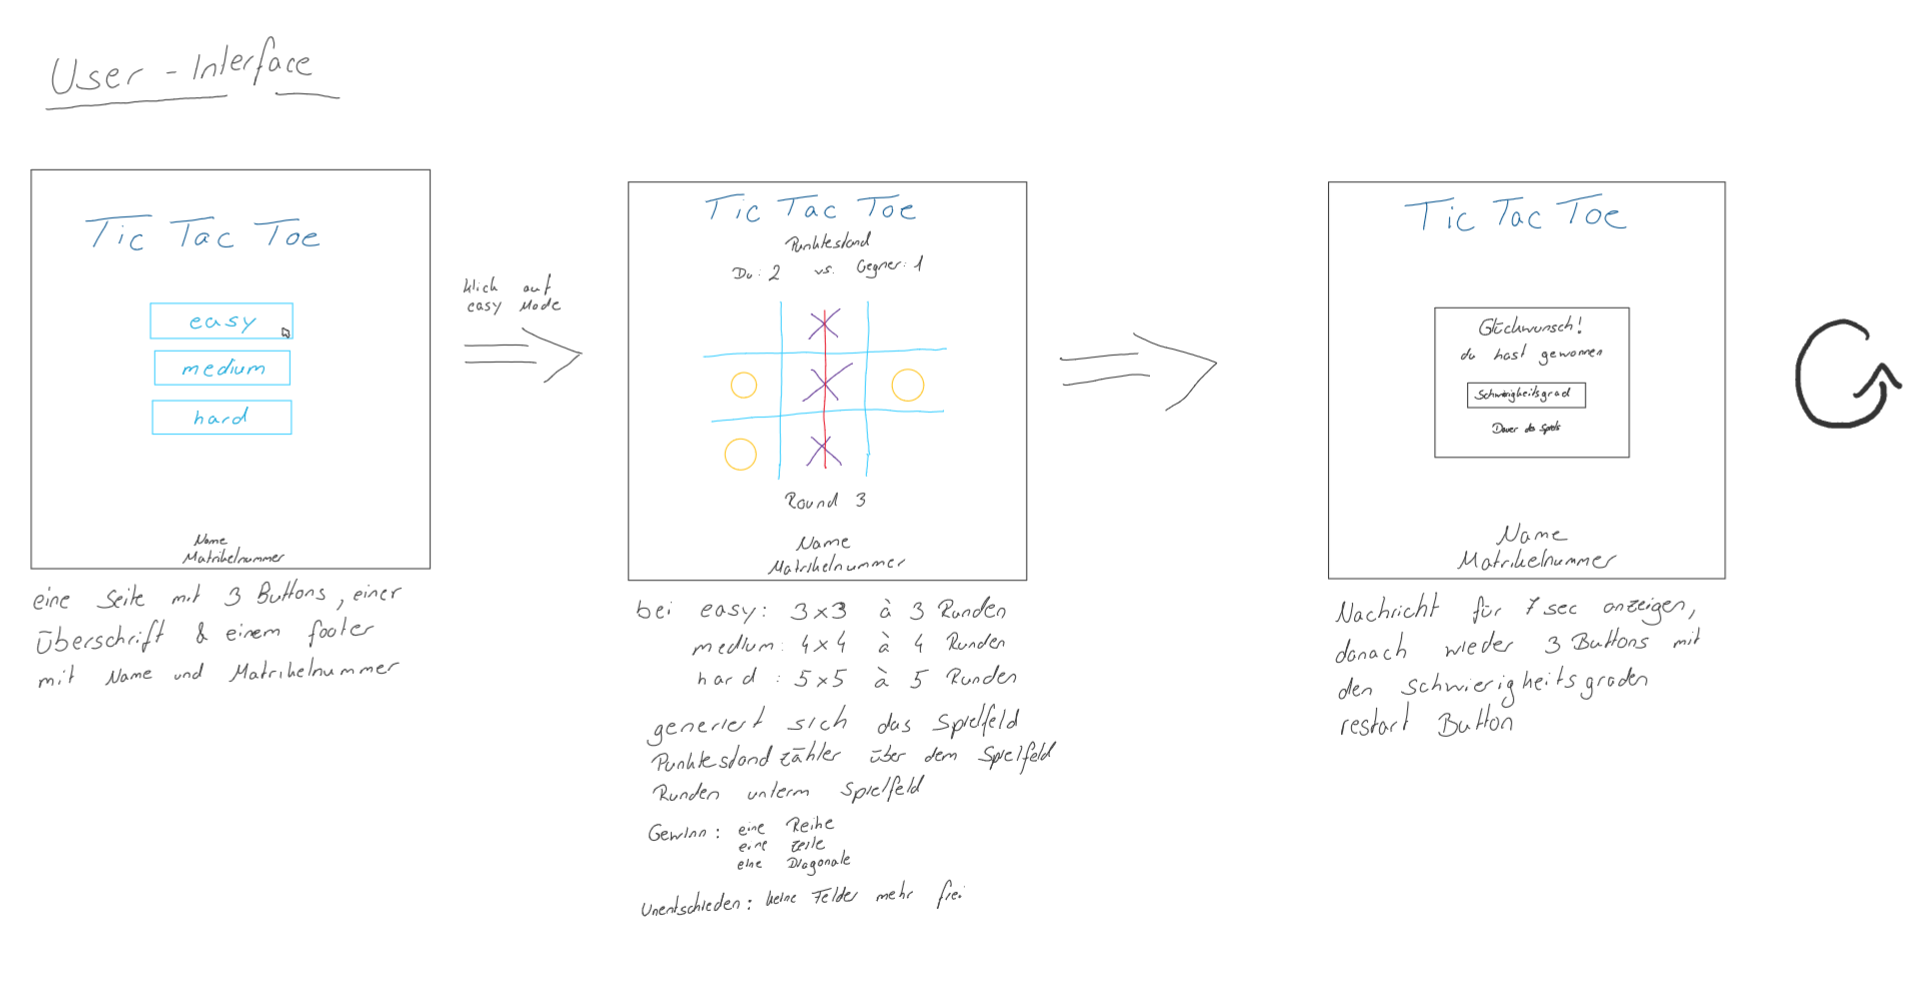 User-Interface
Tic Tac Toe
easy
medium
hard
Name
Matrikelnummer
eine Seite mit 3 Buttons, einer
überschrift & einem footer
mit Name und Matrikelnummer
klick auf
easy Mode
Tic Tac Toe
Punktestand
Du: 2 vs. Gegner: 1
Round 3
Name
Matrikelnummer
bei easy: 3x3 à 3 Runden
medium: 4x4 à 4 Runden
hard: 5x5 à 5 Runden
generiert sich das Spielfeld
Punktestandzähler über dem Spielfeld
Runden unterm Spielfeld
Gewinn: eine Reihe
eine Zeile
eine Diagonale
Unentschieden: keine Felder mehr frei
Tic Tac Toe
Glückwunsch!
du hast gewonnen
Schwierigkeitsgrad
Dauer des Spiels
Name
Matrikelnummer
Nachricht für 7 sec anzeigen,
danach wieder 3 Buttons mit
den Schwierigkeitsgraden
restart Button